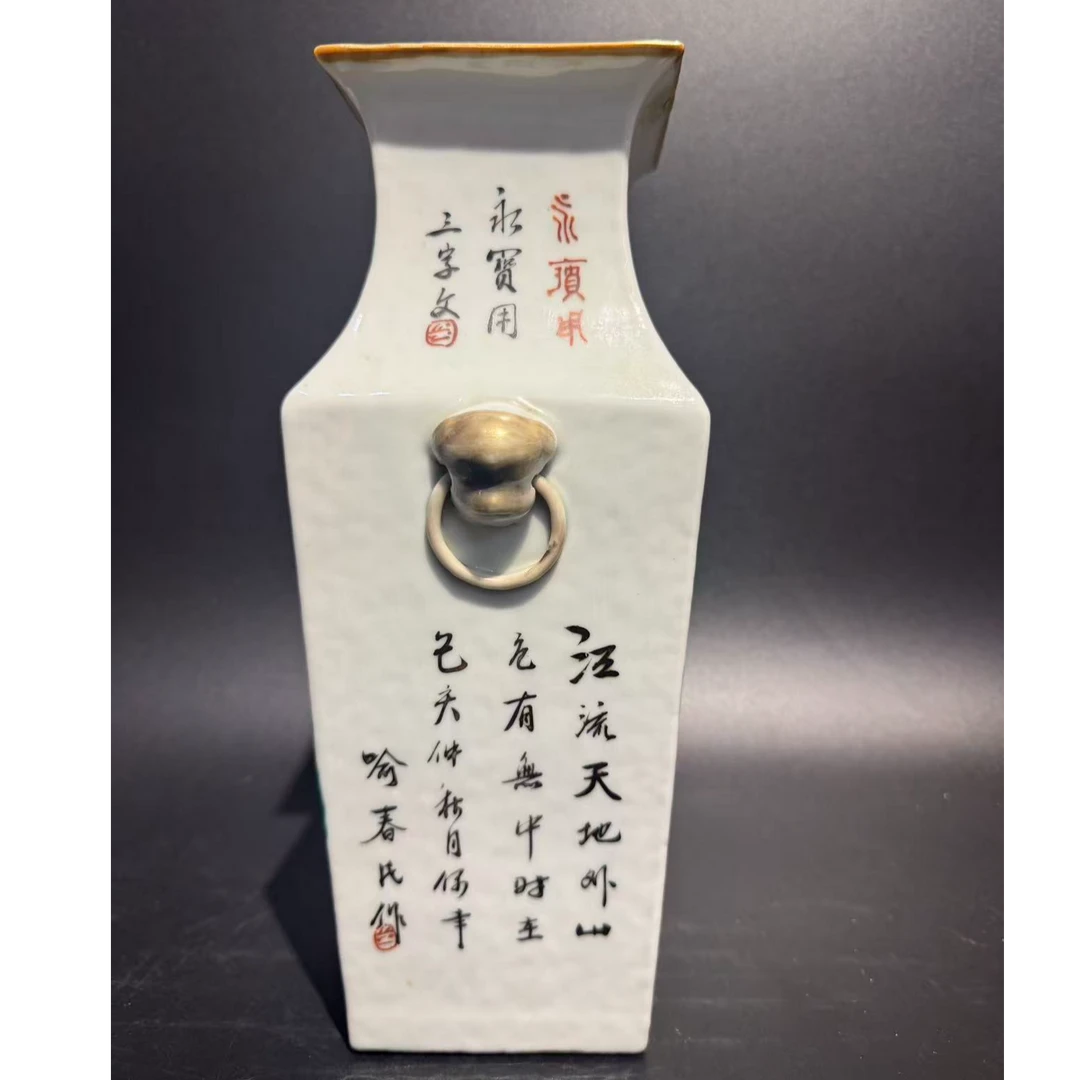 永寶用
永寶用
三字文
江流天地外山
色有無中時在
己亥仲秋月
喻春氏作